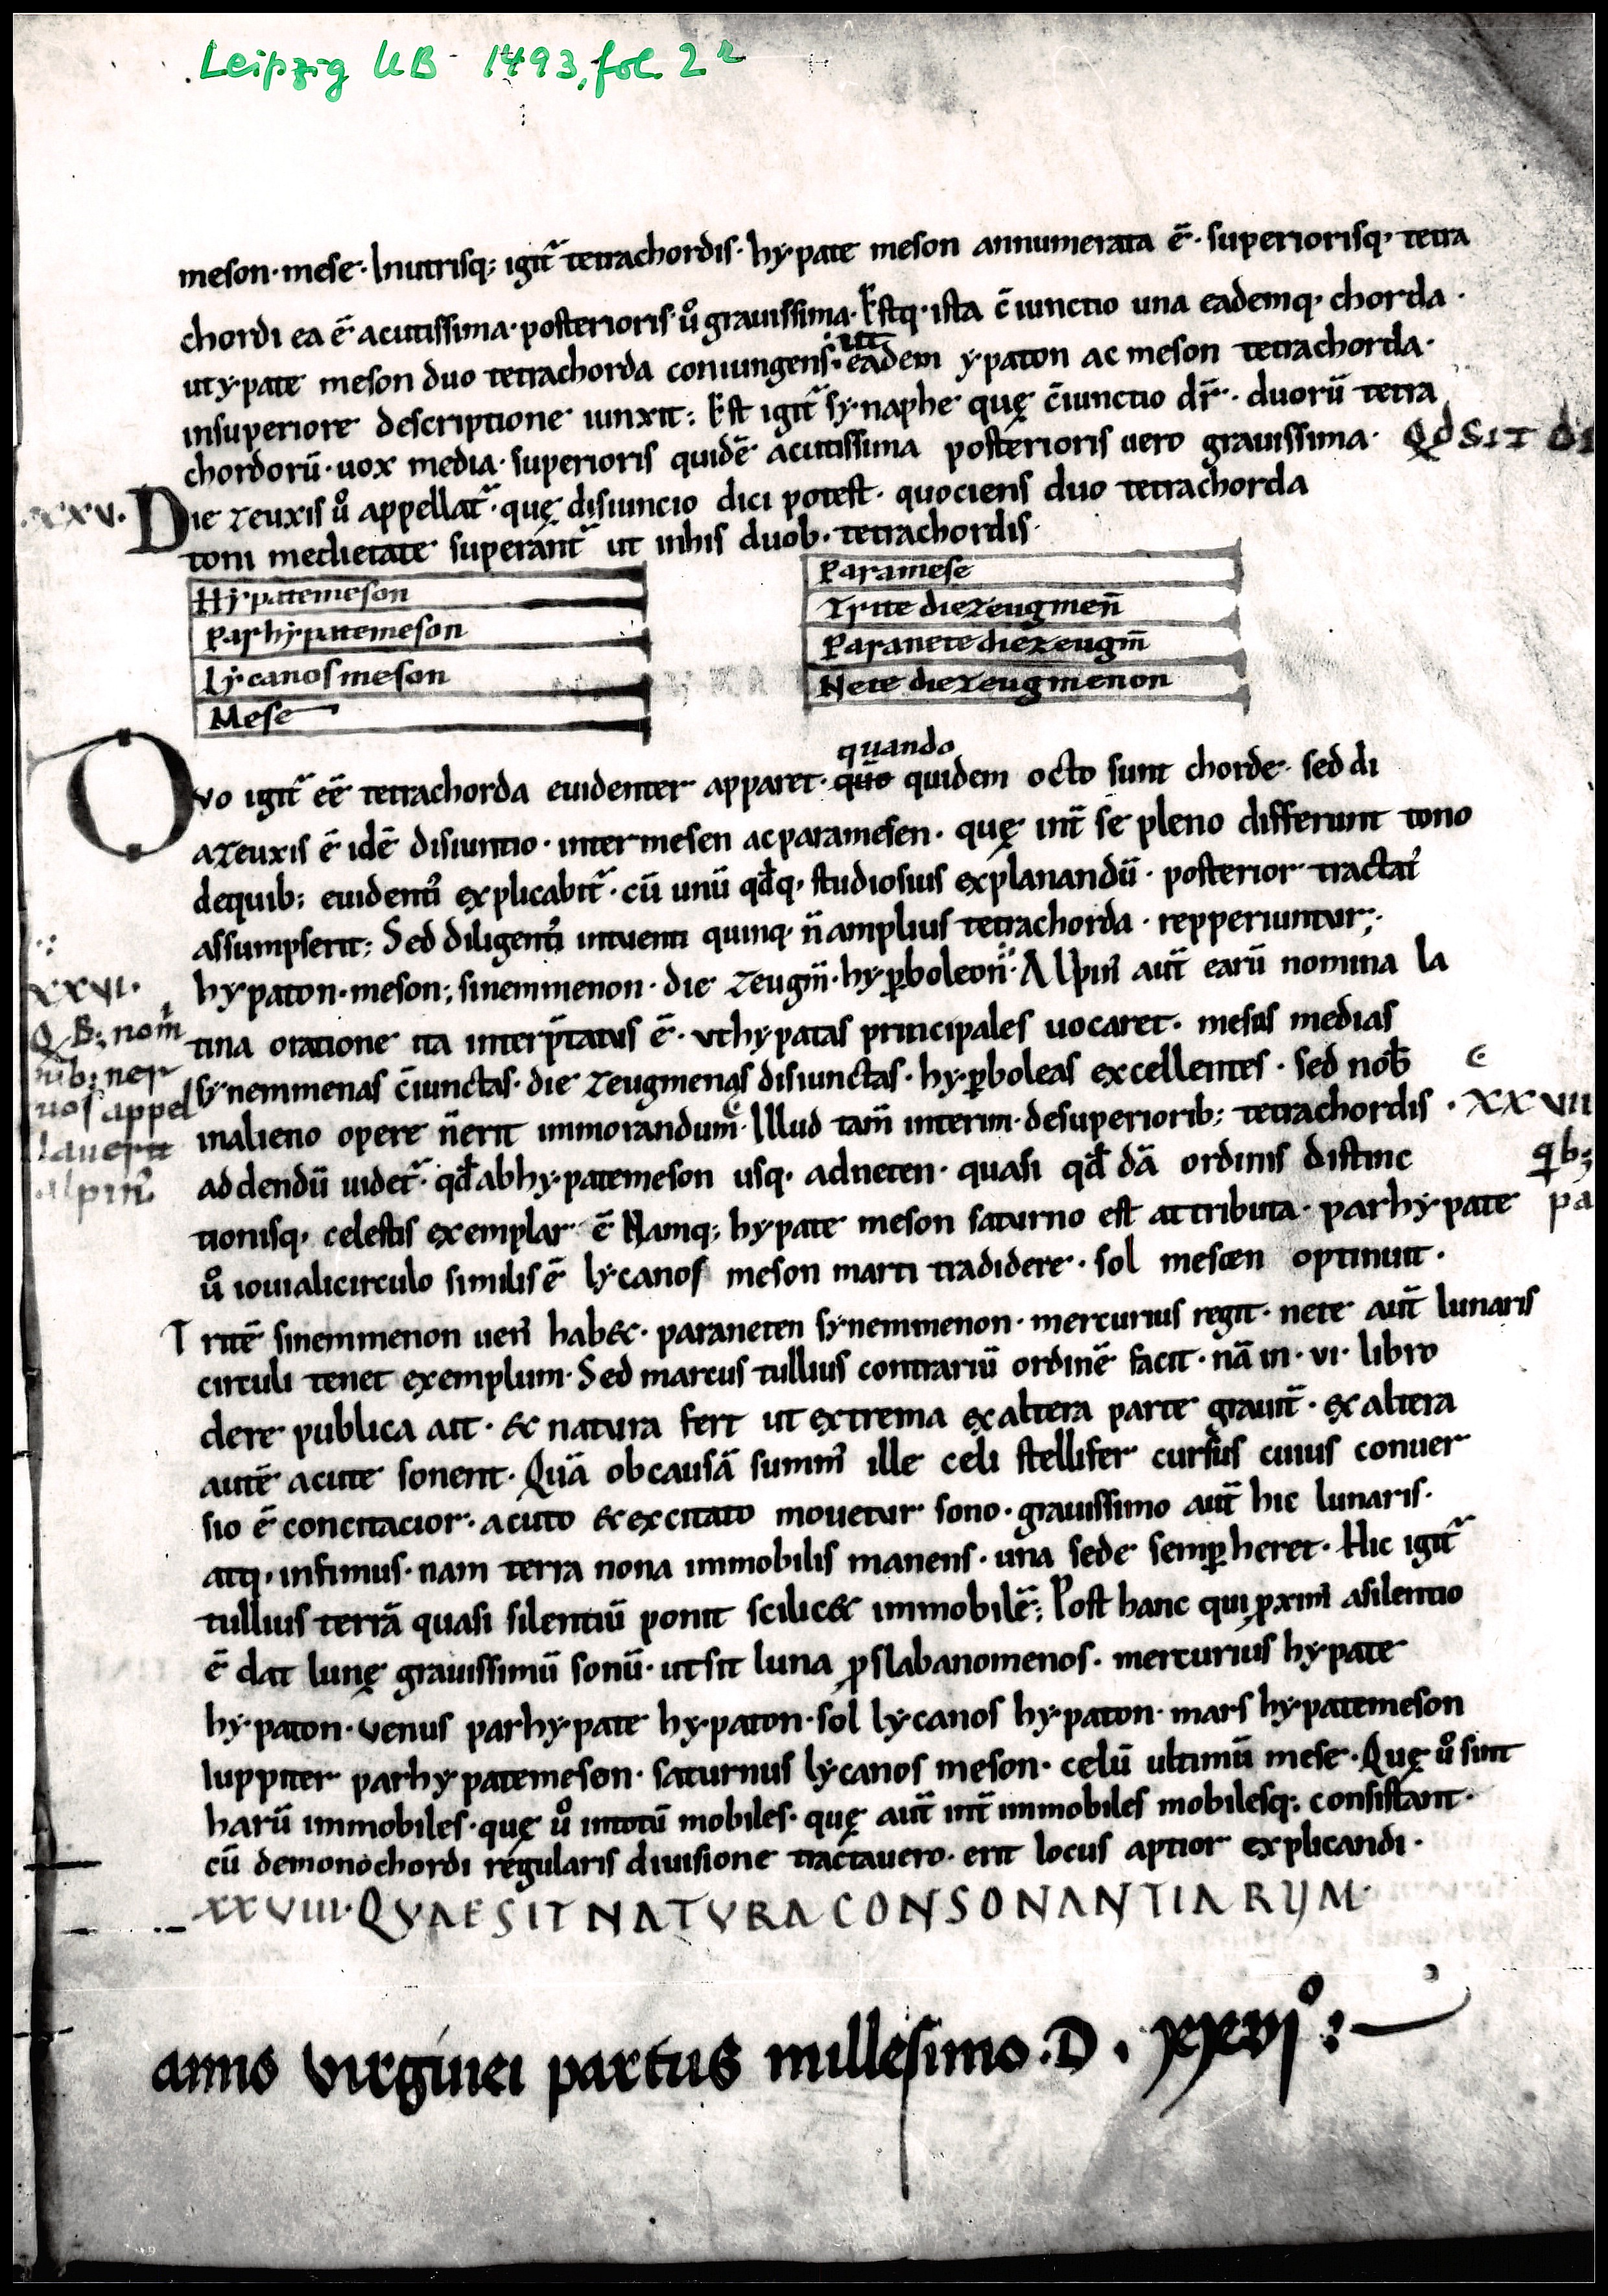 Leipzig UB 1493, fol. 2r
meson· mese· Inutrisq; igit᷑ tetrachordis· hẏpate meson annumerata ē· superiorisq· tetra
chordi ea ē acutissima· posterioris uͦ grauissima· Estq· ista c̄iunctio una eademq· chorda·
ut ẏpate meson duo tetrachorda coniungens· ut eadem ẏpaton ac meson tetrachorda·
insuperiore descriptione iunxit: Est igit᷑ sẏnaphe quę c̄iunctio dr̄· duorū tetra
chordorū· uox media· superioris quidē acutissima posterioris uero grauissima· QdSIT DI
XXV· Die zeuxis uͦ appellat᷑· quę disiuncio dici potest· quociens duo tetrachorda
toni medietate superant᷑ ut inhis duob· tetrachordis·
Hẏpatemeson
Parhẏpatemeson
Lẏcanos meson
Mese
Paramese
Trite diezeugmen̄
Paranete diezeugm̄
Nete diezeugmenon
quando
Ovo igit᷑ eē tetrachorda euidenter apparet· quo quidem octo sunt chorde· sed di
azeuxis ē idē disiuntio· intermesen acparamesen· quę int̄ se pleno differunt tono
dequib; euidenti᷑ explicabit᷑· cū unū qd̄q· studiosius explanandū· posterior tractat᷑
assumpserit; Sed diligenti᷑ intuenti quinq· n̄ amplius tetrachorda· repperiuntur;·
XXVI· hẏpaton· meson; sinemmenon· die zeugm̄· hẏp̱boleon̄· Alpin᷑ aut̄ earū nomina la
Q B; nom̄
nib; ner
uos appel
lauerit
alpin᷑
tina oratione ita interp̄tatus ē· vthẏpatas principales uocaret· mesas medias
sẏnemmenas c̄iunctas· die zeugmenas disiunctas· hẏp̱boleas excellentes· sed nob̄
inalieno opere n̄ erit immorandum· Illud tam̄ interim· desuperiorib; tetrachordis· XXVII
addendū uidet᷑· qd̄ abhẏpatemeson usq· adneten· quasi qd̄ dā ordinis distinc qb;
tionisq· celestis exemplar ē Namq; hẏpate meson saturno est attributa· parhẏpate pa
uͦ iouialicirculo similis ē lẏcanos meson marti tradidere· sol mesen optinuit·
Tritē sinemmenon ueń hab&· paraneten sẏnemmenon· mercurius regit· nete aut̄ lunaris
circuli tenet exemplum· Sed marcus tullius contrariū ordinē facit· nā in· vi· libro
dere publica ait· & natura fert ut extrema exaltera parte grauit̄· exaltera
autē acute sonent· Quā obcausā summ᷑ ille celi stellifer cursus cuius conuer
sio ē concitacior· acuto &excitato mouetur sono· grauissimo aut̄ hic lunaris·
atq· infimus· nam terra nona immobilis manens· una sede semp̱ heret· Hic igit᷑
tullius terrā quasi silentiū ponit scilic& immobilē; Post hanc qui p̱xim᷑ asilentio
ē dat lunę grauissimū sonū· utsit luna p̱slabanomenos· mercurius hẏpate
hẏpaton· venus parhẏpate hẏpaton· sol lẏcanos hẏpaton· mars hẏpatemeson
Iuppiter parhẏpatemeson· saturnus lẏcanos meson· celū ultimū mese· Quę uͦ sint
harū immobiles· quę uͦ intotū mobiles· quę aut̄ int̄ immobiles mobilesq; consistant·
cū demonochordi regularis diuisione tractauero· erit locus aptior explicandi·
XXVIII· QVAE SIT NATVRA CONSONANTIARVM·
anno virginei partus millesimo· D· xxxviͦ :